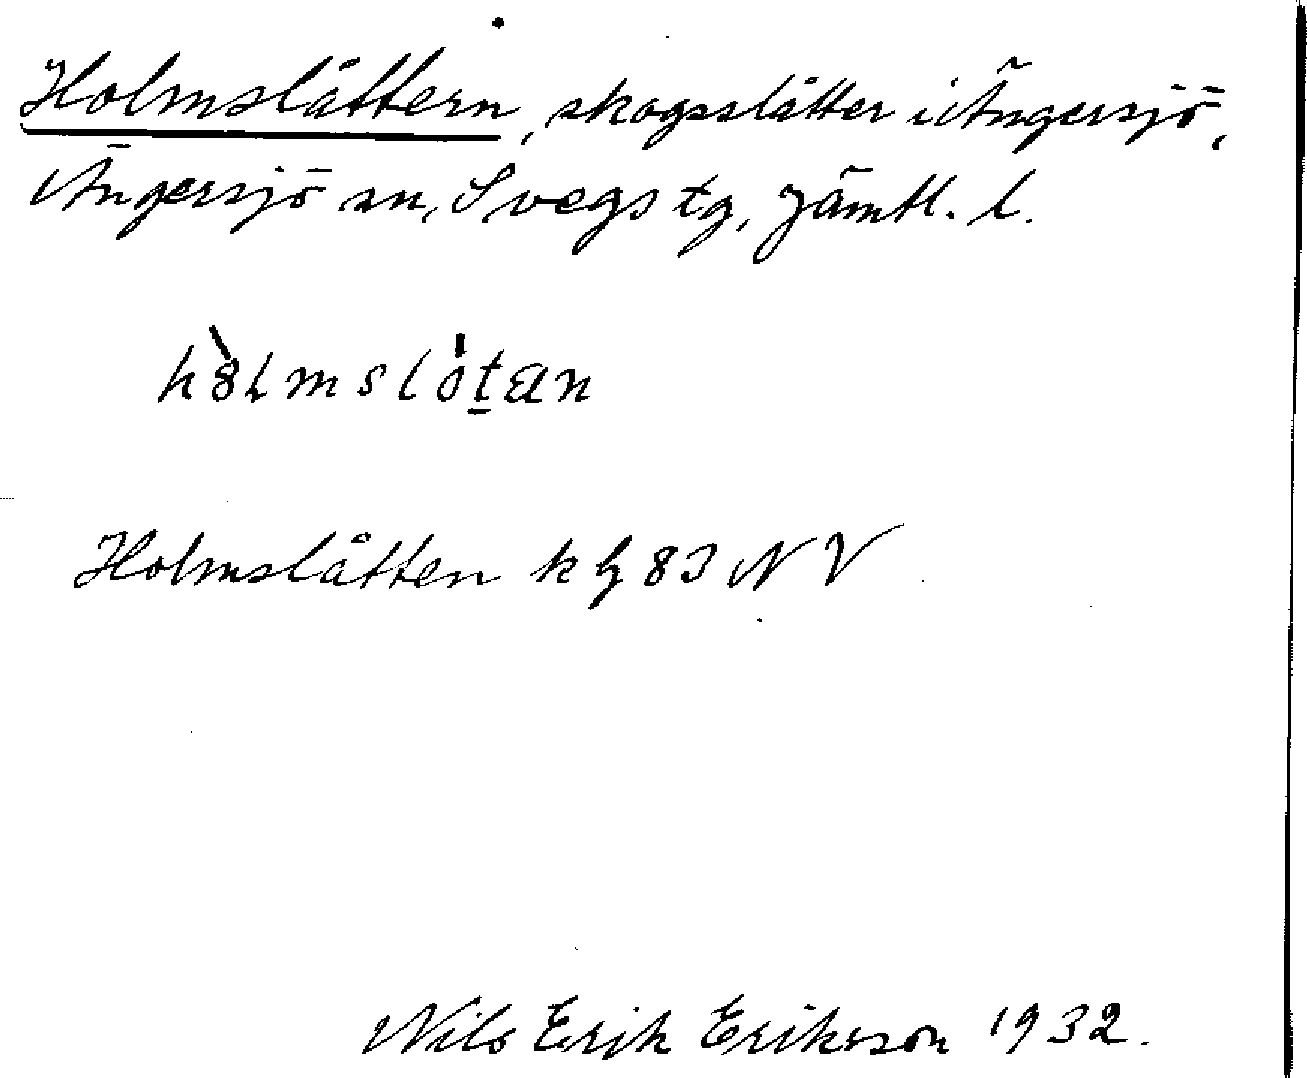 Holmslåttern, skogsslåtter i Ängersjö,
Ängersjö sn, Svegs tg, Jämtl. l.
Holmslåtten k bl 83 NV
Nils Erik Eriksson 1932.